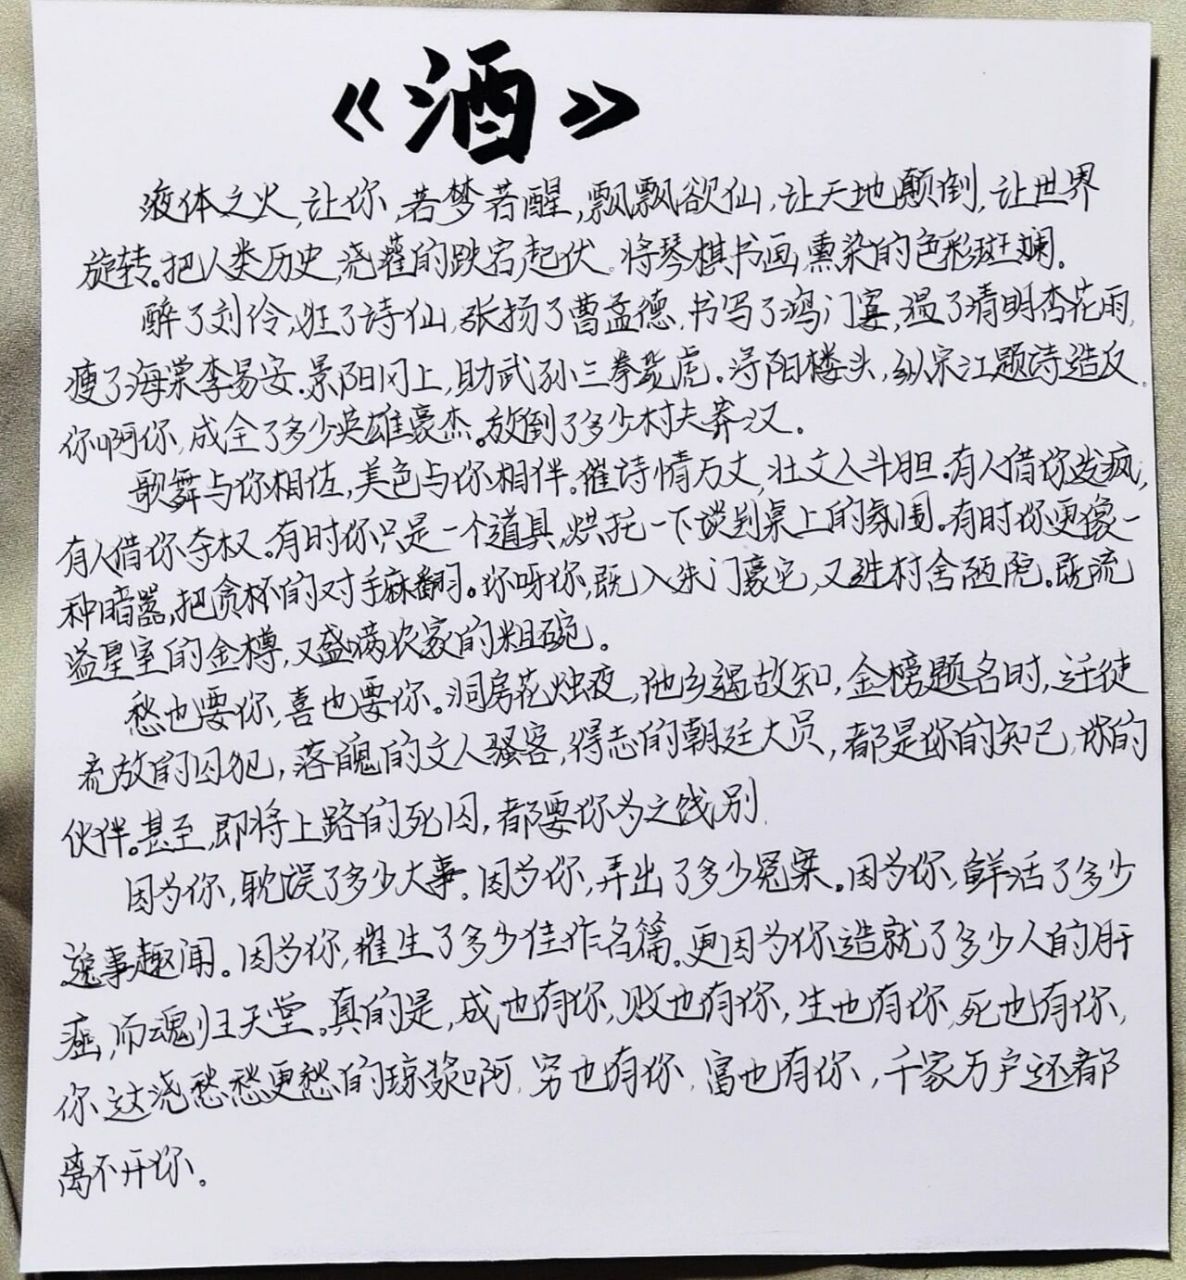 《酒》
液体之火,让你,若梦若醒,飘飘欲仙,让天地颠倒,让世界
旋转。把人类历史,浇灌的跌宕起伏。将琴棋书画,熏染的色彩斑斓。
醉了刘伶,狂了诗仙,张扬了曹孟德,书写了鸿门宴,湿了清明杏花雨,
瘦了海棠李易安。景阳冈上,助武孙三拳毙虎。浔阳楼头,纵宋江题诗造反。
你啊你,成全了多少英雄豪杰。放倒了多少村夫莽汉。
歌舞与你相伍,美色与你相伴。催诗情万丈,壮文人斗胆。有人借你发疯,
有人借你夺权。有时你只是一个道具,烘托一下谈判桌上的氛围。有时你更像一
种暗器,把贪杯的对手麻翻。你呀你,既入朱门豪宅,又进村舍陋院。既流
溢皇室的金樽,又盛满农家的粗碗。
愁也要你,喜也要你。洞房花烛夜,他乡遇故知,金榜题名时,迁徒
流放的囚犯,落魄的文人骚客,得志的朝廷大员,都是你的知己,你的
伙伴。甚至,即将上路的死囚,都要你为之饯别.
因为你,耽误了多少大事。因为你,弄出了多少冤案。因为你,鲜活了多少
逸事趣闻。因为你,催生了多少佳作名篇。更因为你造就了多少人的肝
癌,而魂归天堂。真的是,成也有你,败也有你,生也有你,死也有你,
你这浇愁愁更愁的琼浆啊,穷也有你,富也有你,千家万户还都
离不开你。